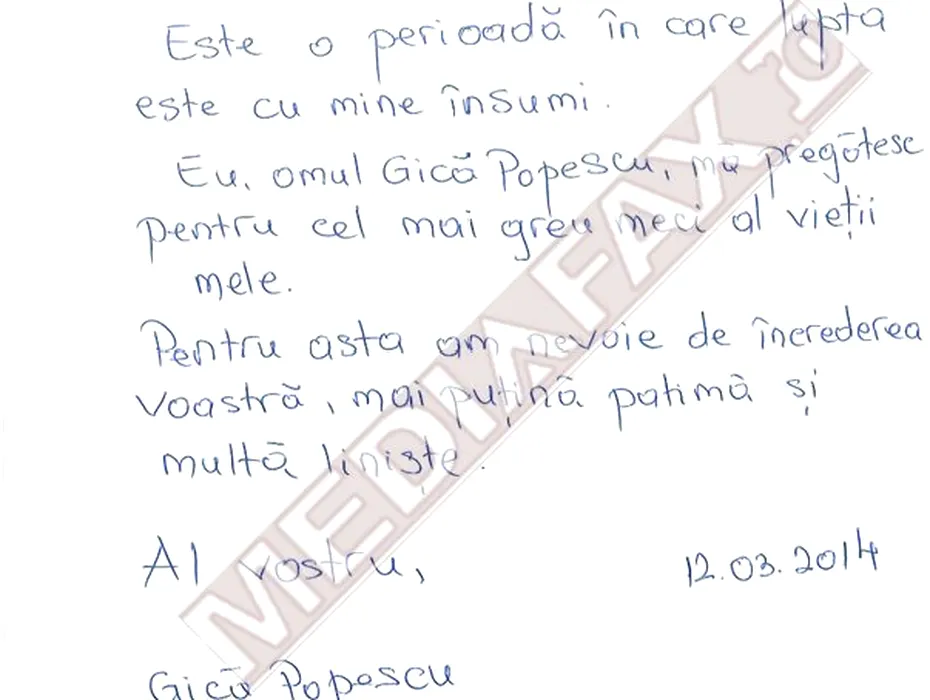 Este o perioadă în care lupta
este cu mine însumi.
Eu, omul Gică Popescu, mă pregătesc
pentru cel mai greu meci al vieții
mele.
Pentru asta am nevoie de încrederea
voastră, mai puțină patimă și
multă liniște.
Al vostru,
12.03.2014
Gică Popescu
MEDIAFAX.ro